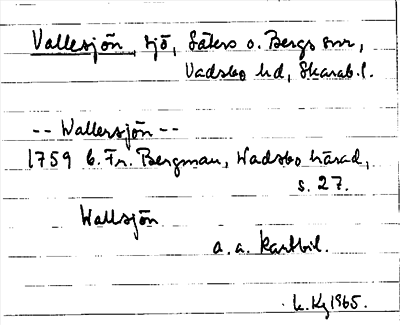 Vallesjön, sjö, Säters o. Bergs snr,
Vadsbo hd, Skarab.l.
-- Wallersjön --
1759 C. Fr. Bergman, Wadsbo härad,
s. 27.
Wallsjön
a. a. kartbil.
1965.